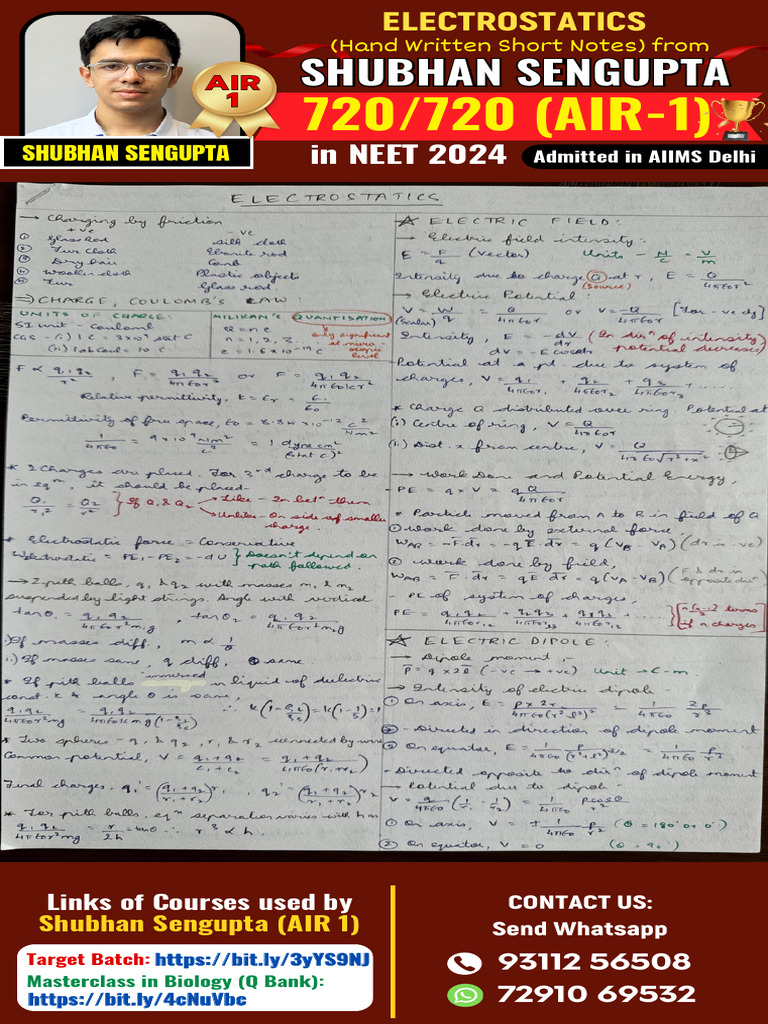 ELECTROSTATICS
(Hand Written Short Notes) from
SHUBHAN SENGUPTA
720/720 (AIR-1)
in NEET 2024
Admitted in AIIMS Delhi
AIR
1
SHUBHAN SENGUPTA
ELECTROSTATICS
→ Charging by friction
+ve -ve
① Glass Rod Silk cloth
② Fur Cloth Ebonite rod
③ Dry hair Comb
④ Woollen cloth Plastic objects
⑤ Fur Glass rod
⇒ CHARGE, COULOMB'S LAW:
UNITS OF CHARGE:
SI unit - Coulomb
CGS - (i) 1 C = 3×10⁹ stat C
MILIKAN'S QUANTISATION
Q = n e
n = 1, 2, 3
e = 1.6 × 10⁻¹⁹ C
only significant
at micro
scopic
level
F ∝ q₁q₂/r², F = q₁q₂/4πε₀r² or F = q₁q₂/4πε₀kr²
Relative permitivity, k = εr = ε/ε₀
Permitivity of free space, ε₀ = 8.84 × 10⁻¹² C²/Nm²
1/4πε₀ = 9×10⁹ Nm²/C² = 1 dyne cm²/(stat C)²
* 2 Charges are placed. For 3rd charge to be
in eqᵐ, it should be placed-
Q₁/r₁² = Q₂/r₂² } If Q₁ & Q₂ → Like - In betⁿ them
Unlike - On side of smaller
charge.
* Electrostatic force = Conservative
W electrostatic = PE₁ - PE₂ = -dU } Doesn't depend on
path followed.
→ 2 pith balls, q₁ & q₂ with masses m₁ & m₂
suspended by light strings. Angle with vertical
tanθ₁ = q₁q₂/4πε₀r²m₁g, tanθ₂ = q₁q₂/4πε₀r²m₂g
i) If masses diff, m ∝ 1/θ
ii) If masses same, q diff, θ same
* If pith balls immersed in liquid of dielectric
const. k & angle θ is same,
* Two spheres - q₁ & q₂, r₁ & r₂ connected by wire
Common potential, V = q₁+q₂/C₁+C₂ = q₁+q₂/4πε₀(r₁+r₂)
Final charges. q₁' = (q₁+q₂/r₁+r₂)r₁, q₂' = (q₁+q₂/r₁+r₂)r₂
* For pith balls. eqᵐ separation varies with h as
q₁q₂/4πε₀r²mg = r/2h = tanθ ∴ r³ ∝ h.
☆ ELECTRIC FIELD:
→ Electric field intensity:
E = F/q (Vector) Units - N/C = V/m
Intensity due to charge Q at r, E = Q/4πε₀r²
(Source)
→ Electric Potential:
V = W/q = Q/4πε₀r or V = -Q/4πε₀r [For -ve chg]
(scalar)
Intensity, E = -dV/dr (In dirⁿ of intensity
potential decreases)
dV = -E cosθ dr
Potential at a pt. due to system of
charges, V = q₁/4πε₀r₁ + q₂/4πε₀r₂ + q₃/4πε₀r₃ + ......
* Charge Q distributed over ring. Potential at
(i) Centre of ring, V = Q/4πε₀r
(ii) Dist. x from centre, V = Q/4πε₀√r²+x²
→ Work Done and Potential Energy,
- PE = q × V = qQ/4πε₀r
* Particle moved from A to B in field of Q
① Work done by external force,
W_AB = -F.dr = -qE.dr = q(V_B - V_A) (dr is -ve)
② Work done by field,
W_AB = F.dr = qE.dr = q(V_A - V_B) (F & dr in
opposite dirⁿ)
- PE of system of charges,
PE = q₁q₂/4πε₀r₁₂ + q₂q₃/4πε₀r₂₃ + q₁q₃/4πε₀r₁₃ + ..... [n(n-1)/2 terms
if n charges]
☆ ELECTRIC DIPOLE:
→ Dipole moment -
P = q × 2l (-ve → +ve) Unit → C-m
→ Intensity of electric dipole -
① On axis, E = p×2r/4πε₀(r²-l²)² = 1/4πε₀ 2p/r³
- Directed in direction of dipole moment
② On equator, E = 1/4πε₀ p/(r²+l²)^3/2 = 1/4πε₀ p/r³
- Directed opposite to dirⁿ of dipole moment
→ Potential due to dipole -
V = q/4πε₀ (1/r₁ - 1/r₂) = 1/4πε₀ pcosθ/r²
① On axis, V = ± 1/4πε₀ p/r² (θ = 180° or 0°)
② On equator, V = 0 (θ = 90°)
Links of Courses used by
Shubhan Sengupta (AIR 1)
Target Batch: https://bit.ly/3yYS9NJ
Masterclass in Biology (Q Bank):
https://bit.ly/4cNuVbc
CONTACT US:
Send Whatsapp
93112 56508
72910 69532